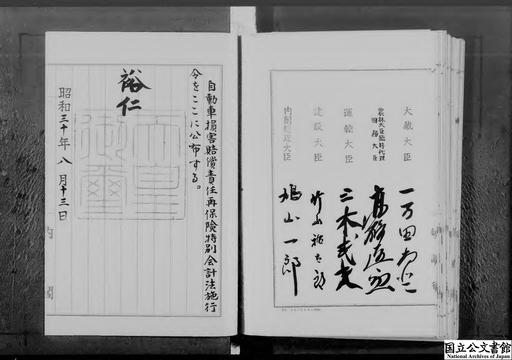 大蔵大臣
一万田尚登
農林大臣臨時代理
国務大臣
高碕達之助
運輸大臣
三木武夫
建設大臣
竹山祐太郎
内閣総理大臣
鳩山一郎
自動車損害賠償責任再保険特別会計法施行
令をここに公布する。
裕仁
天皇
御璽
昭和三十年八月十三日
内閣
国立公文書館
National Archives of Japan